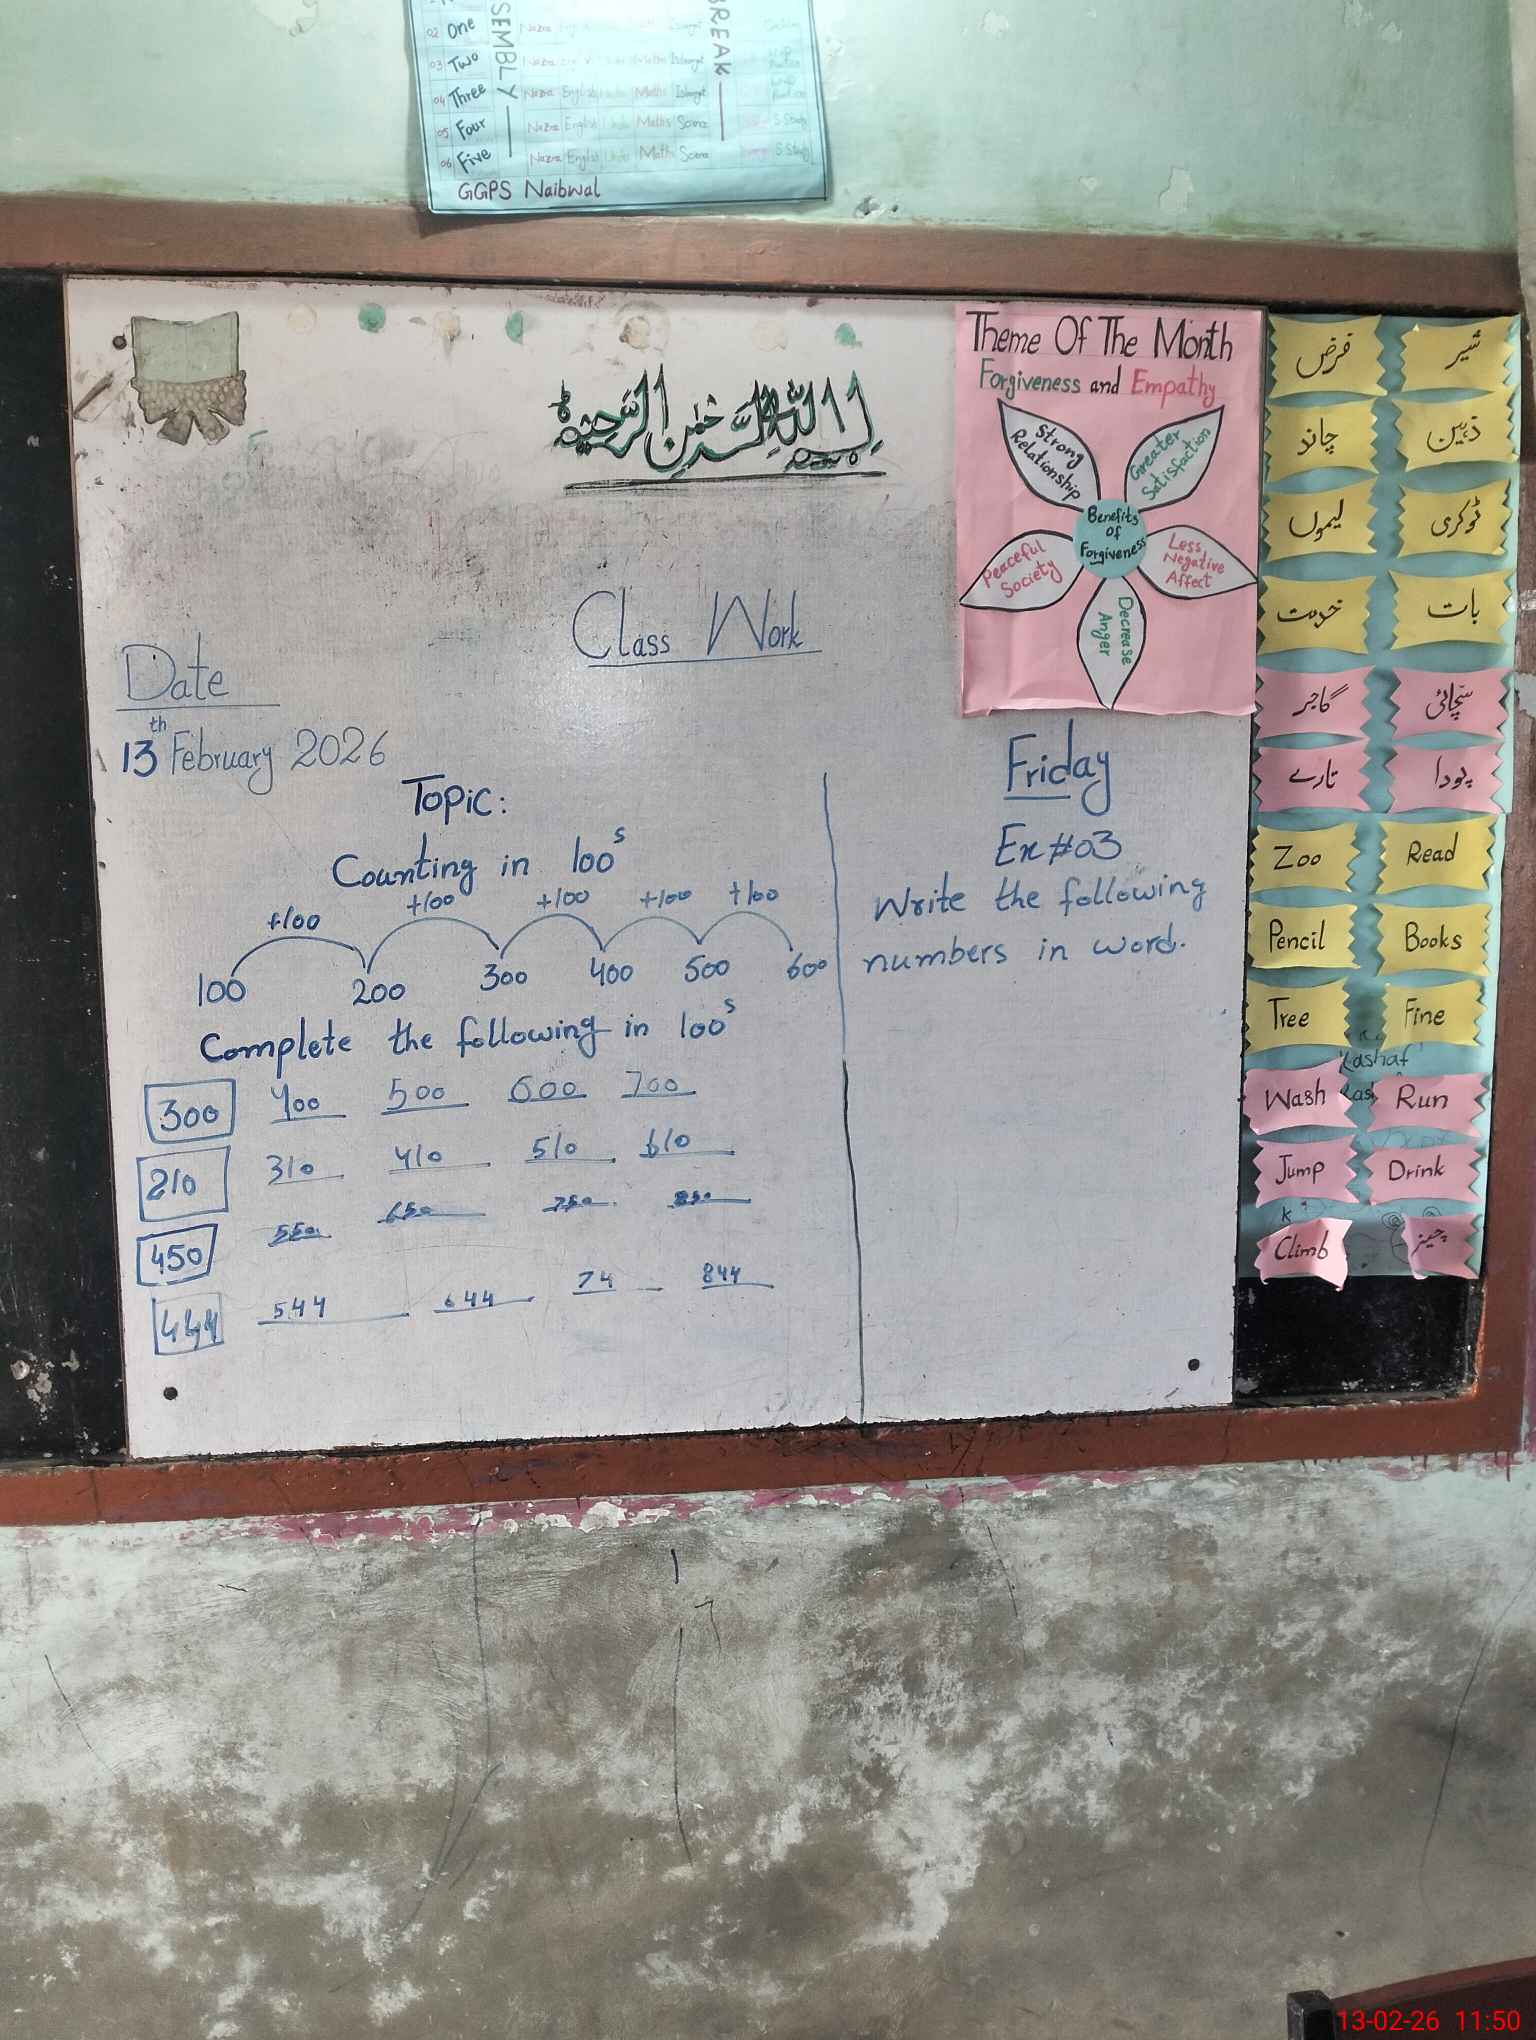 02 One
03 Two
04 Three Nazra English Maths Islamyat
05 Four Nazra English Maths Science S.Study
06 Five Nazra English Urdu Maths Science S.Study
SEMBLY
BREAK
GGPS Naibwal
بسم اللہ الرحمٰن الرحیم
Theme Of The Month
Forgiveness and Empathy
Strong Relationship
Greater Satisfaction
Benefits of Forgiveness
Peaceful Society
Less Negative Affect
Decrease Anger
Class Work
Date
13th February 2026
Topic:
Counting in 100s
+100 +100 +100 +100 +100
100 200 300 400 500 600
Complete the following in 100s
300 400 500 600 700
210 310 410 510 610
450 550 650 750 850
444 544 644 74 844
Friday
Ex#03
Write the following
numbers in word.
فرض شیر
چاند ذہین
لیموں ٹوکری
خدمت بات
گاجر سچائی
تارے پودا
Zoo Read
Pencil Books
Tree Fine
Kashaf
Wash Run
Jump Drink
K
Climb چیز
13-02-26 11:50